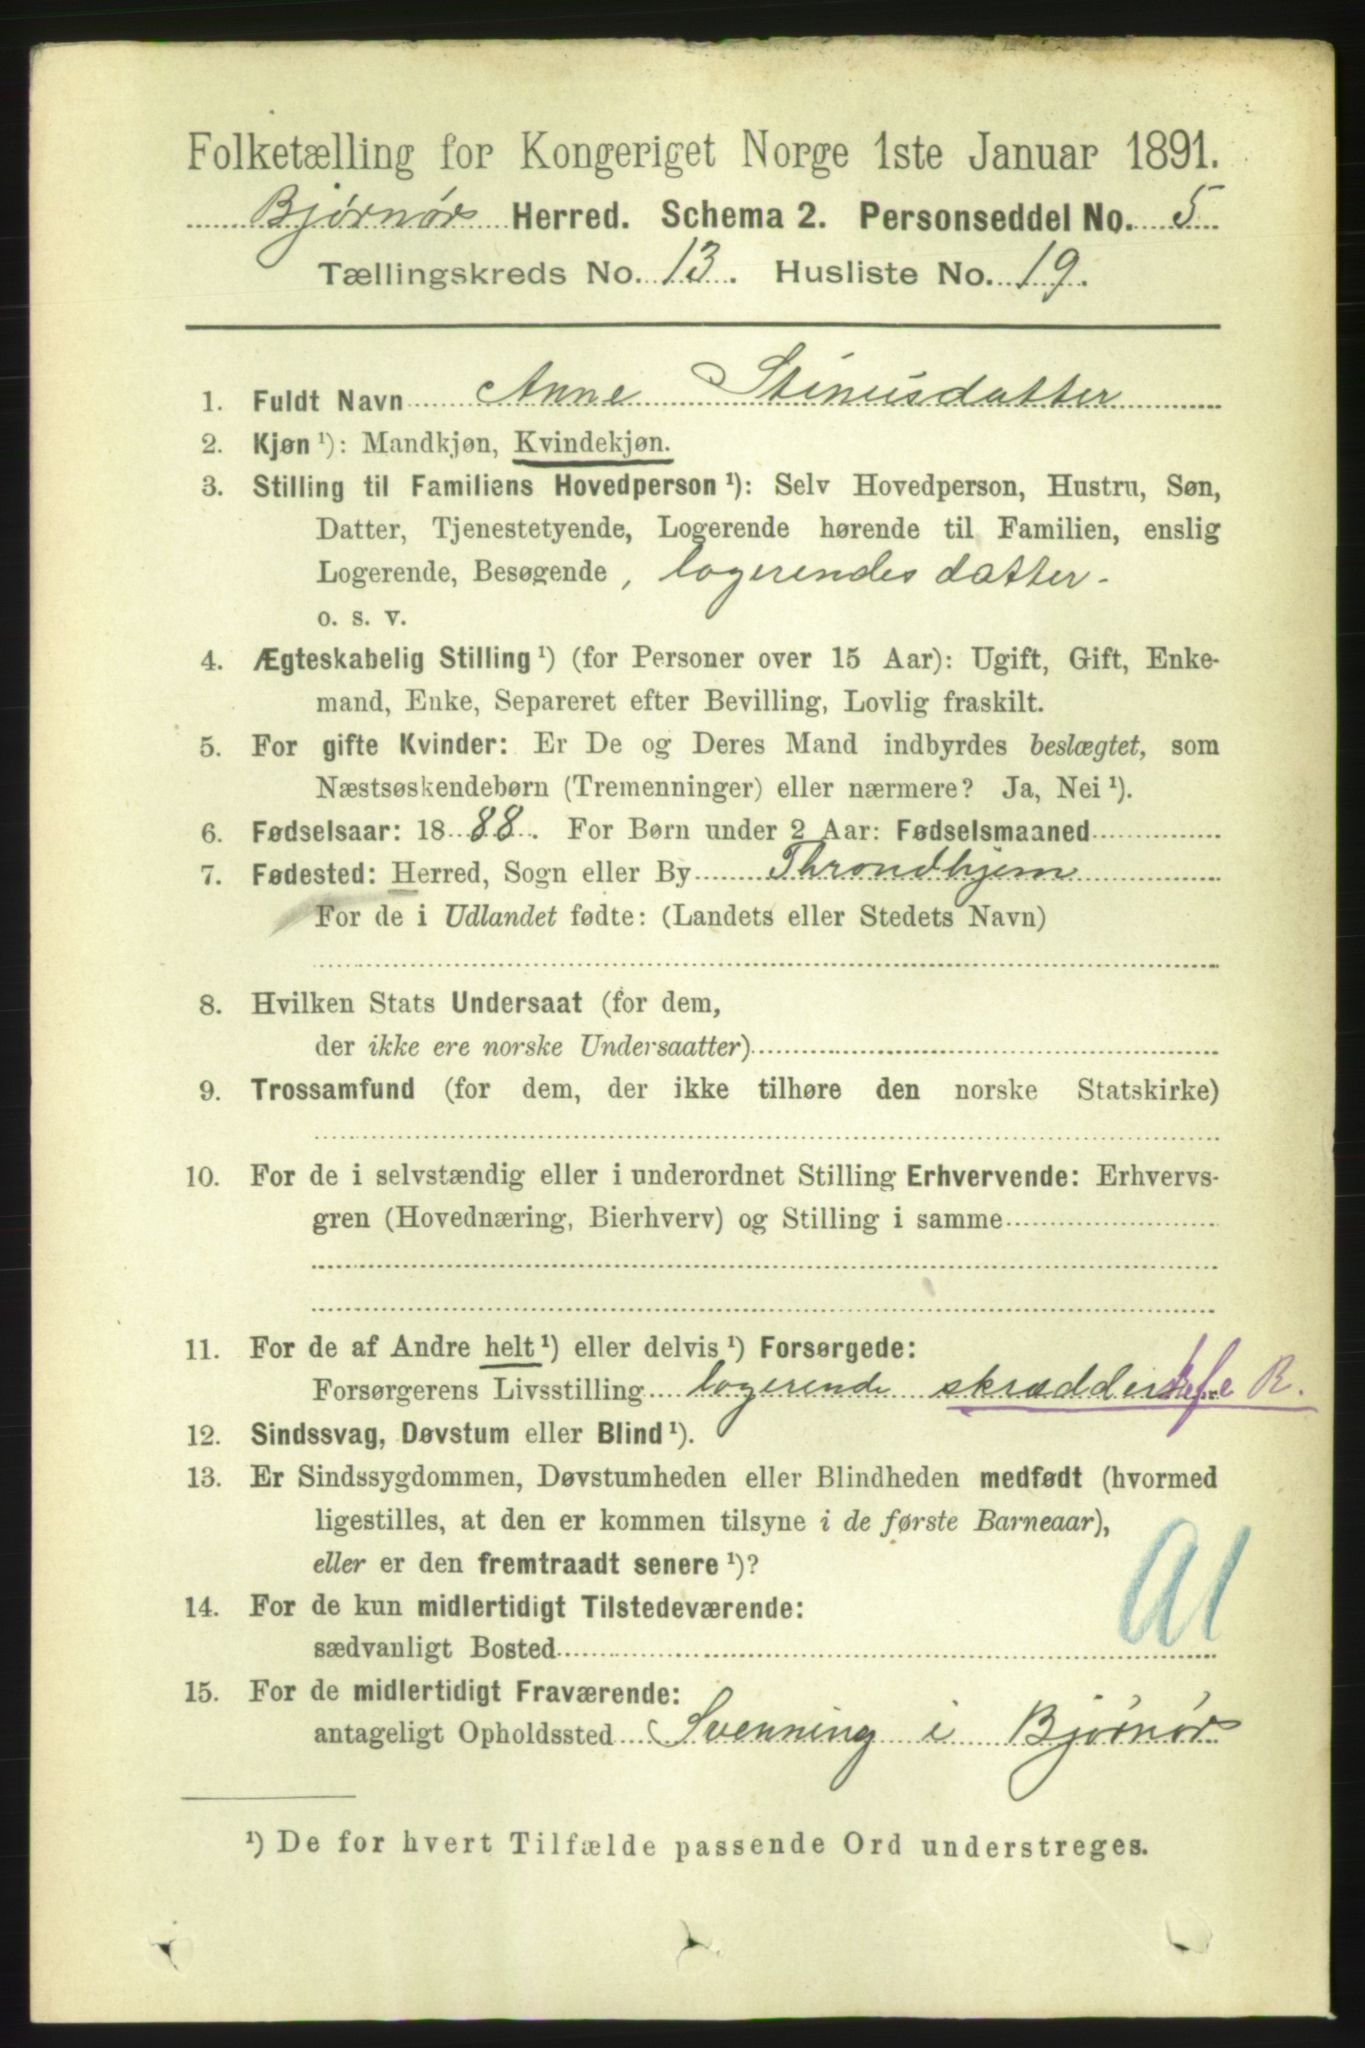 Folketælling for Kongeriget Norge 1ste Januar 1891.
Bjørnørs Herred. Schema 2. Personseddel No. 5
Tællingskreds No. 13. Husliste No. 19.
1. Fuldt Navn Anne Stinusdatter
2. Kjøn ¹): Mandkjøn, Kvindekjøn.
3. Stilling til Familiens Hovedperson ¹): Selv Hovedperson, Hustru, Søn,
Datter, Tjenestetyende, Logerende hørende til Familien, enslig
Logerende, Besøgende, logerendes datter.
o. s. v.
4. Ægteskabelig Stilling ¹) (for Personer over 15 Aar): Ugift, Gift, Enke-
mand, Enke, Separeret efter Bevilling, Lovlig fraskilt.
5. For gifte Kvinder: Er De og Deres Mand indbyrdes beslægtet, som
Næstsøskendebørn (Tremenninger) eller nærmere? Ja, Nei ¹).
6. Fødselsaar: 1888. For Børn under 2 Aar: Fødselsmaaned
7. Fødested: Herred, Sogn eller By Throndhjem
For de i Udlandet fødte: (Landets eller Stedets Navn)
8. Hvilken Stats Undersaat (for dem,
der ikke ere norske Undersaatter)
9. Trossamfund (for dem, der ikke tilhøre den norske Statskirke)
10. For de i selvstændig eller i underordnet Stilling Erhvervende: Erhvervs-
gren (Hovednæring, Bierhverv) og Stilling i samme
11. For de af Andre helt ¹) eller delvis ¹) Forsørgede:
Forsørgerens Livsstilling logerende skrædderske R.
12. Sindssvag, Døvstum eller Blind ¹).
13. Er Sindssygdommen, Døvstumheden eller Blindheden medfødt (hvormed
ligestilles, at den er kommen tilsyne i de første Barneaar),
eller er den fremtraadt senere ¹)?
14. For de kun midlertidigt Tilstedeværende:
sædvanligt Bosted
15. For de midlertidigt Fraværende:
antageligt Opholdssted Svenning i Bjørnør
¹) De for hvert Tilfælde passende Ord understreges.